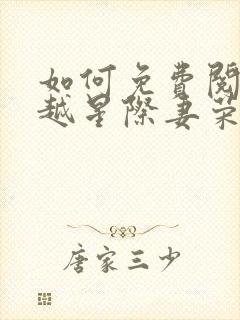 如何免費閱
越星際妻榮
唐家三少